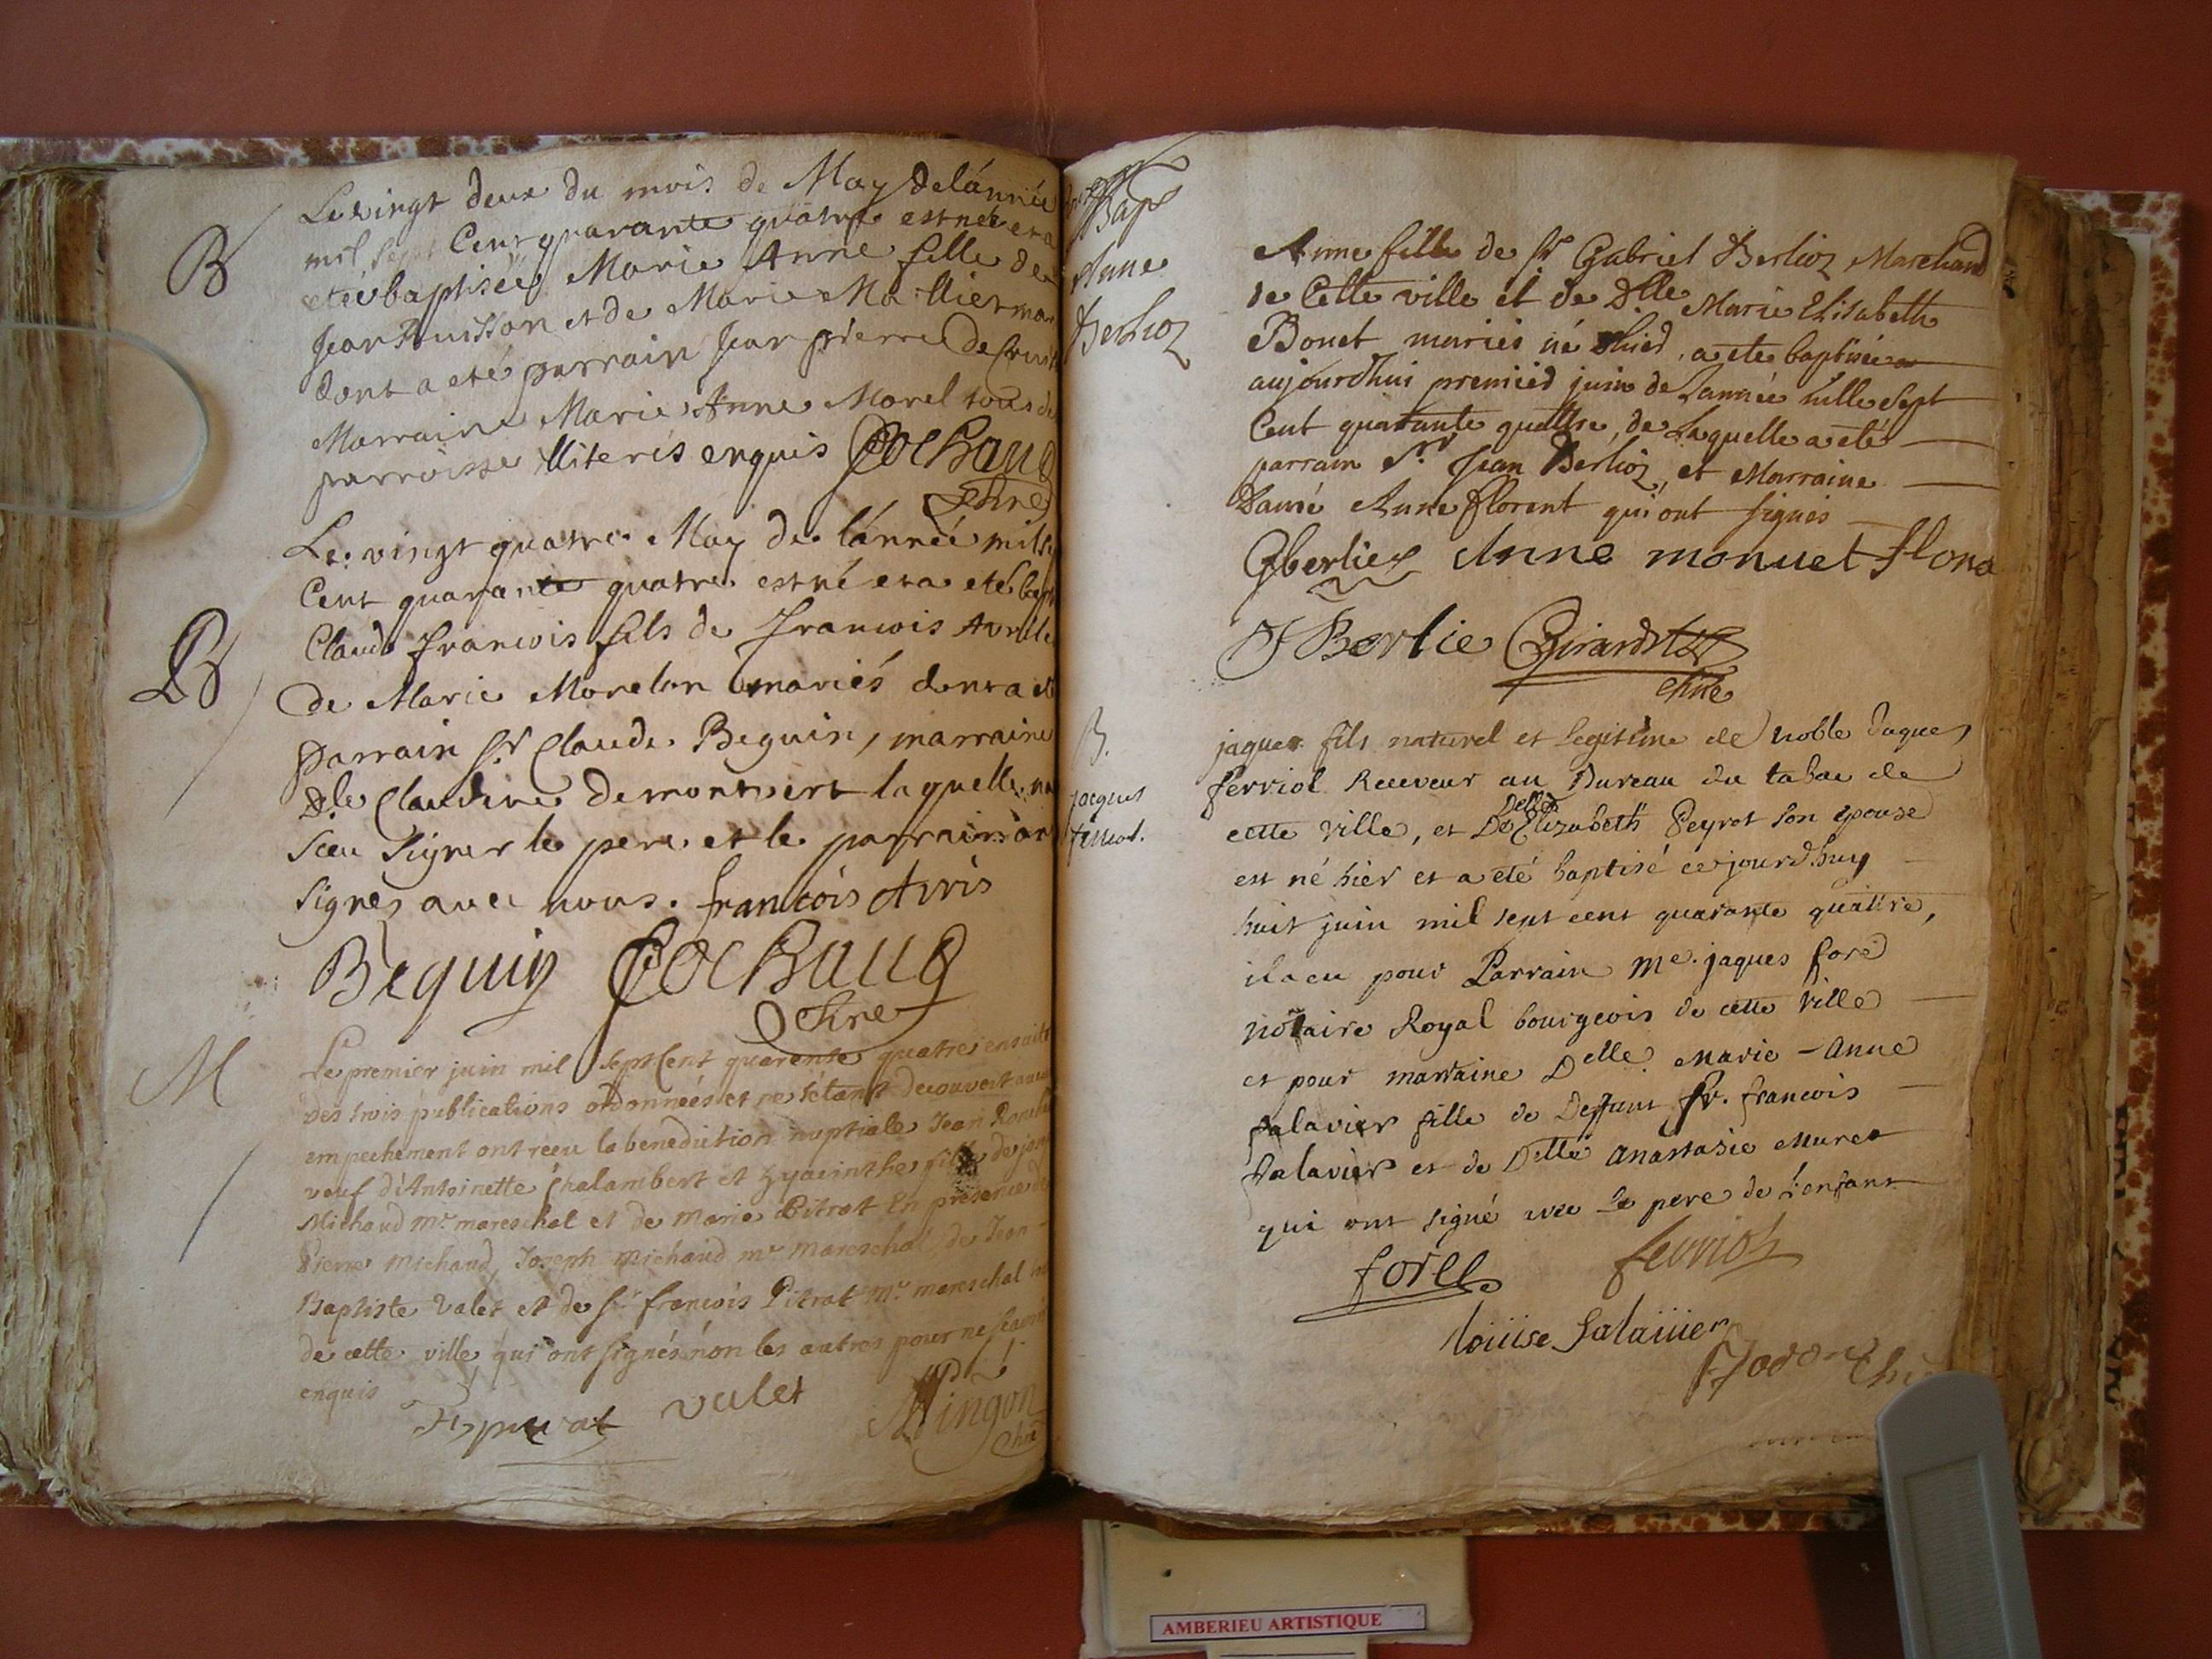 B
Le vingt deux du mois de May de lánnée
mil sept Cent quarante quatre est née et a
eté baptisée Marie Anne fille de
Jean Buisson et de Marie
dont a eté parrain Jean pierre
Marraine Marie Anne Morel tous de
parroisse illiterés enquis Cochaud
Chne
B
Le vingt quatre May de lánneé mil
Cent quarante quatre est né et a eté
Claude francois fils de francois
de Marie Morelon mariés dont a
parrain Sr Claude Beguin, marraine
Dle Claudine demontvert laquelle
sceu signer le pere et le parrain
signes avec nous. francois Avris
Beguin Cochaud
Chne
M
Le premier juin mil sept Cent quarente quatre ensuite
des trois publications ordonnées et ne s'étant decouvert
empechement ont recu la benediction nuptiale Jean
veuf d'Antoinette Chalambert et hyacinthe fille de
Michaud Mre mareschal et de Marie Pitrat En presence
Pierre Michaud, Joseph Michaud mre Mareschal, de Jean-
Baptiste Valet et de Sr francois Pitrat Mre mareschal
de cette ville qui ont signés non les autres pour ne
enquis
valet
Mingon
Chne
Bap
Anne
Berlioz
Anne fille de Sr Gabriel Berlioz Marchand
de Cette ville et de Dlle Marie Elisabeth
Bonet mariés né hier, a ete baptisée
aujourdhui premier juin de Lannée mille Sept
Cent quarante quattre, de Laquelle a eté
parrain Sr Jean Berlioz, et Marraine
Dame Anne florent qui ont signés
Gberlies Anne monuet
J Berlie Girard
Chne
B.
jacques
ferriol.
jaques fils naturel et legitime de noble Jaques
ferriol Receveur au Bureau du tabac de
cette ville, et Delle Elizabeth Peyrot son epouse
est né hier et a eté baptisé ce jourdhuy
huit juin mil sept cent quarante quattre,
il a eu pour Parrain Me. jaques foré
notaire Royal bourgeois de cette ville
et pour marraine Delle Marie-Anne
Salavier fille de Deffunt Sr. francois
Salavier et de Delle Anastasie Muret
qui ont signé avec le pere de l'enfant
foree ferriol
loüise Salauier
AMBERIEU ARTISTIQUE